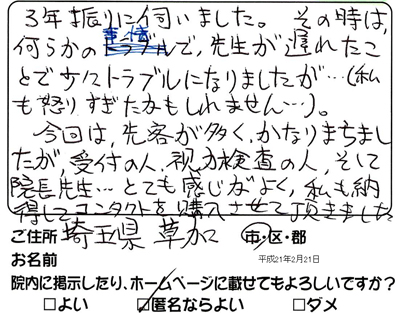 3年振りに伺いました。その時は,
何らかの事情で,先生が遅れたこ
とで少々トラブルになりましたが…(私
も怒りすぎたかもしれません…)。
今回は,先客が多く,かなりまちまし
たが,受付の人,視力検査の人,そして
院長先生…とても感じがよく,私も納
得してコンタクトを購入させて頂きました
ご住所 埼玉県 草加 市・区・郡
お名前 平成21年2月21日
院内に掲示したり、ホームページに載せてもよろしいですか?
□よい □匿名ならよい □ダメ